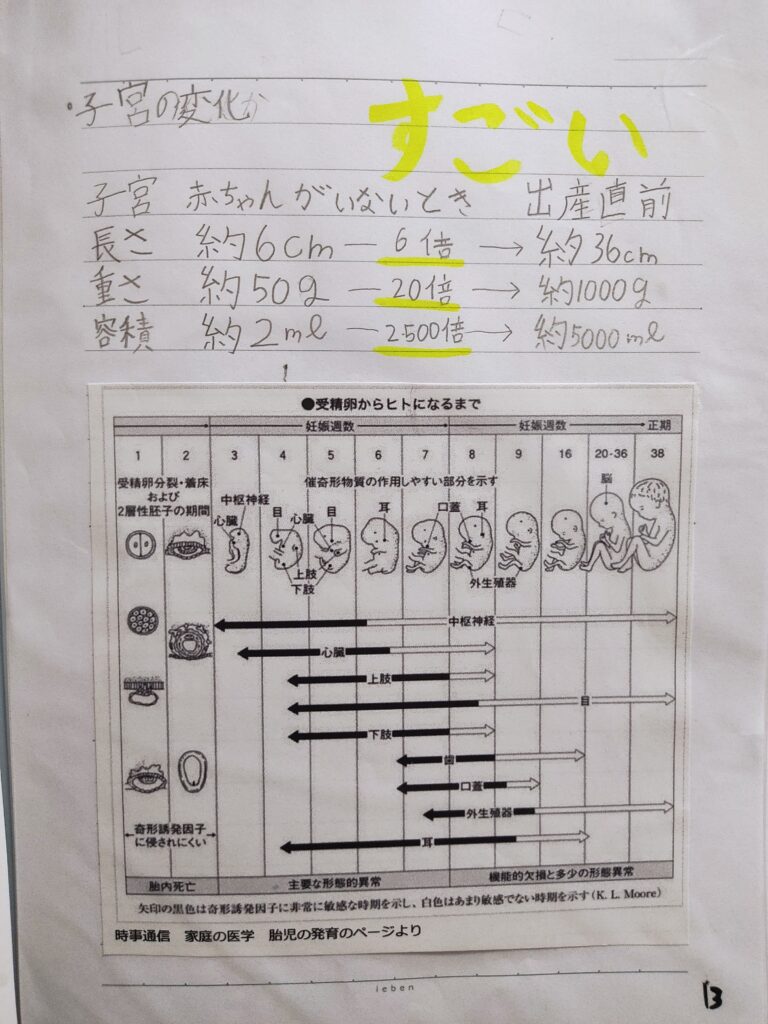 ・子宮の変化が
すごい
子宮 赤ちゃんがいないとき 出産直前
長さ 約6cm ― 6倍 → 約36cm
重さ 約50g ― 20倍 → 約1000g
容積 約2ml ― 2500倍 → 約5000ml
●受精卵からヒトになるまで
妊娠週数 妊娠週数 正期
1 2 3 4 5 6 7 8 9 16 20-36 38
受精卵分裂・着床
および
2層性胚子の期間
催奇形物質の作用しやすい部分を示す
脳
中枢神経
心臓
目 心臓 目
耳
口蓋 耳
上肢
下肢
外生殖器
中枢神経
心臓
上肢
目
下肢
歯
口蓋
外生殖器
耳
奇形誘発因子
に侵されにくい
胎内死亡 主要な形態的異常 機能的欠損と多少の形態異常
矢印の黒色は奇形誘発因子に非常に敏感な時期を示し、白色はあまり敏感でない時期を示す(K. L. Moore)
時事通信 家庭の医学 胎児の発育のページより
leben
13